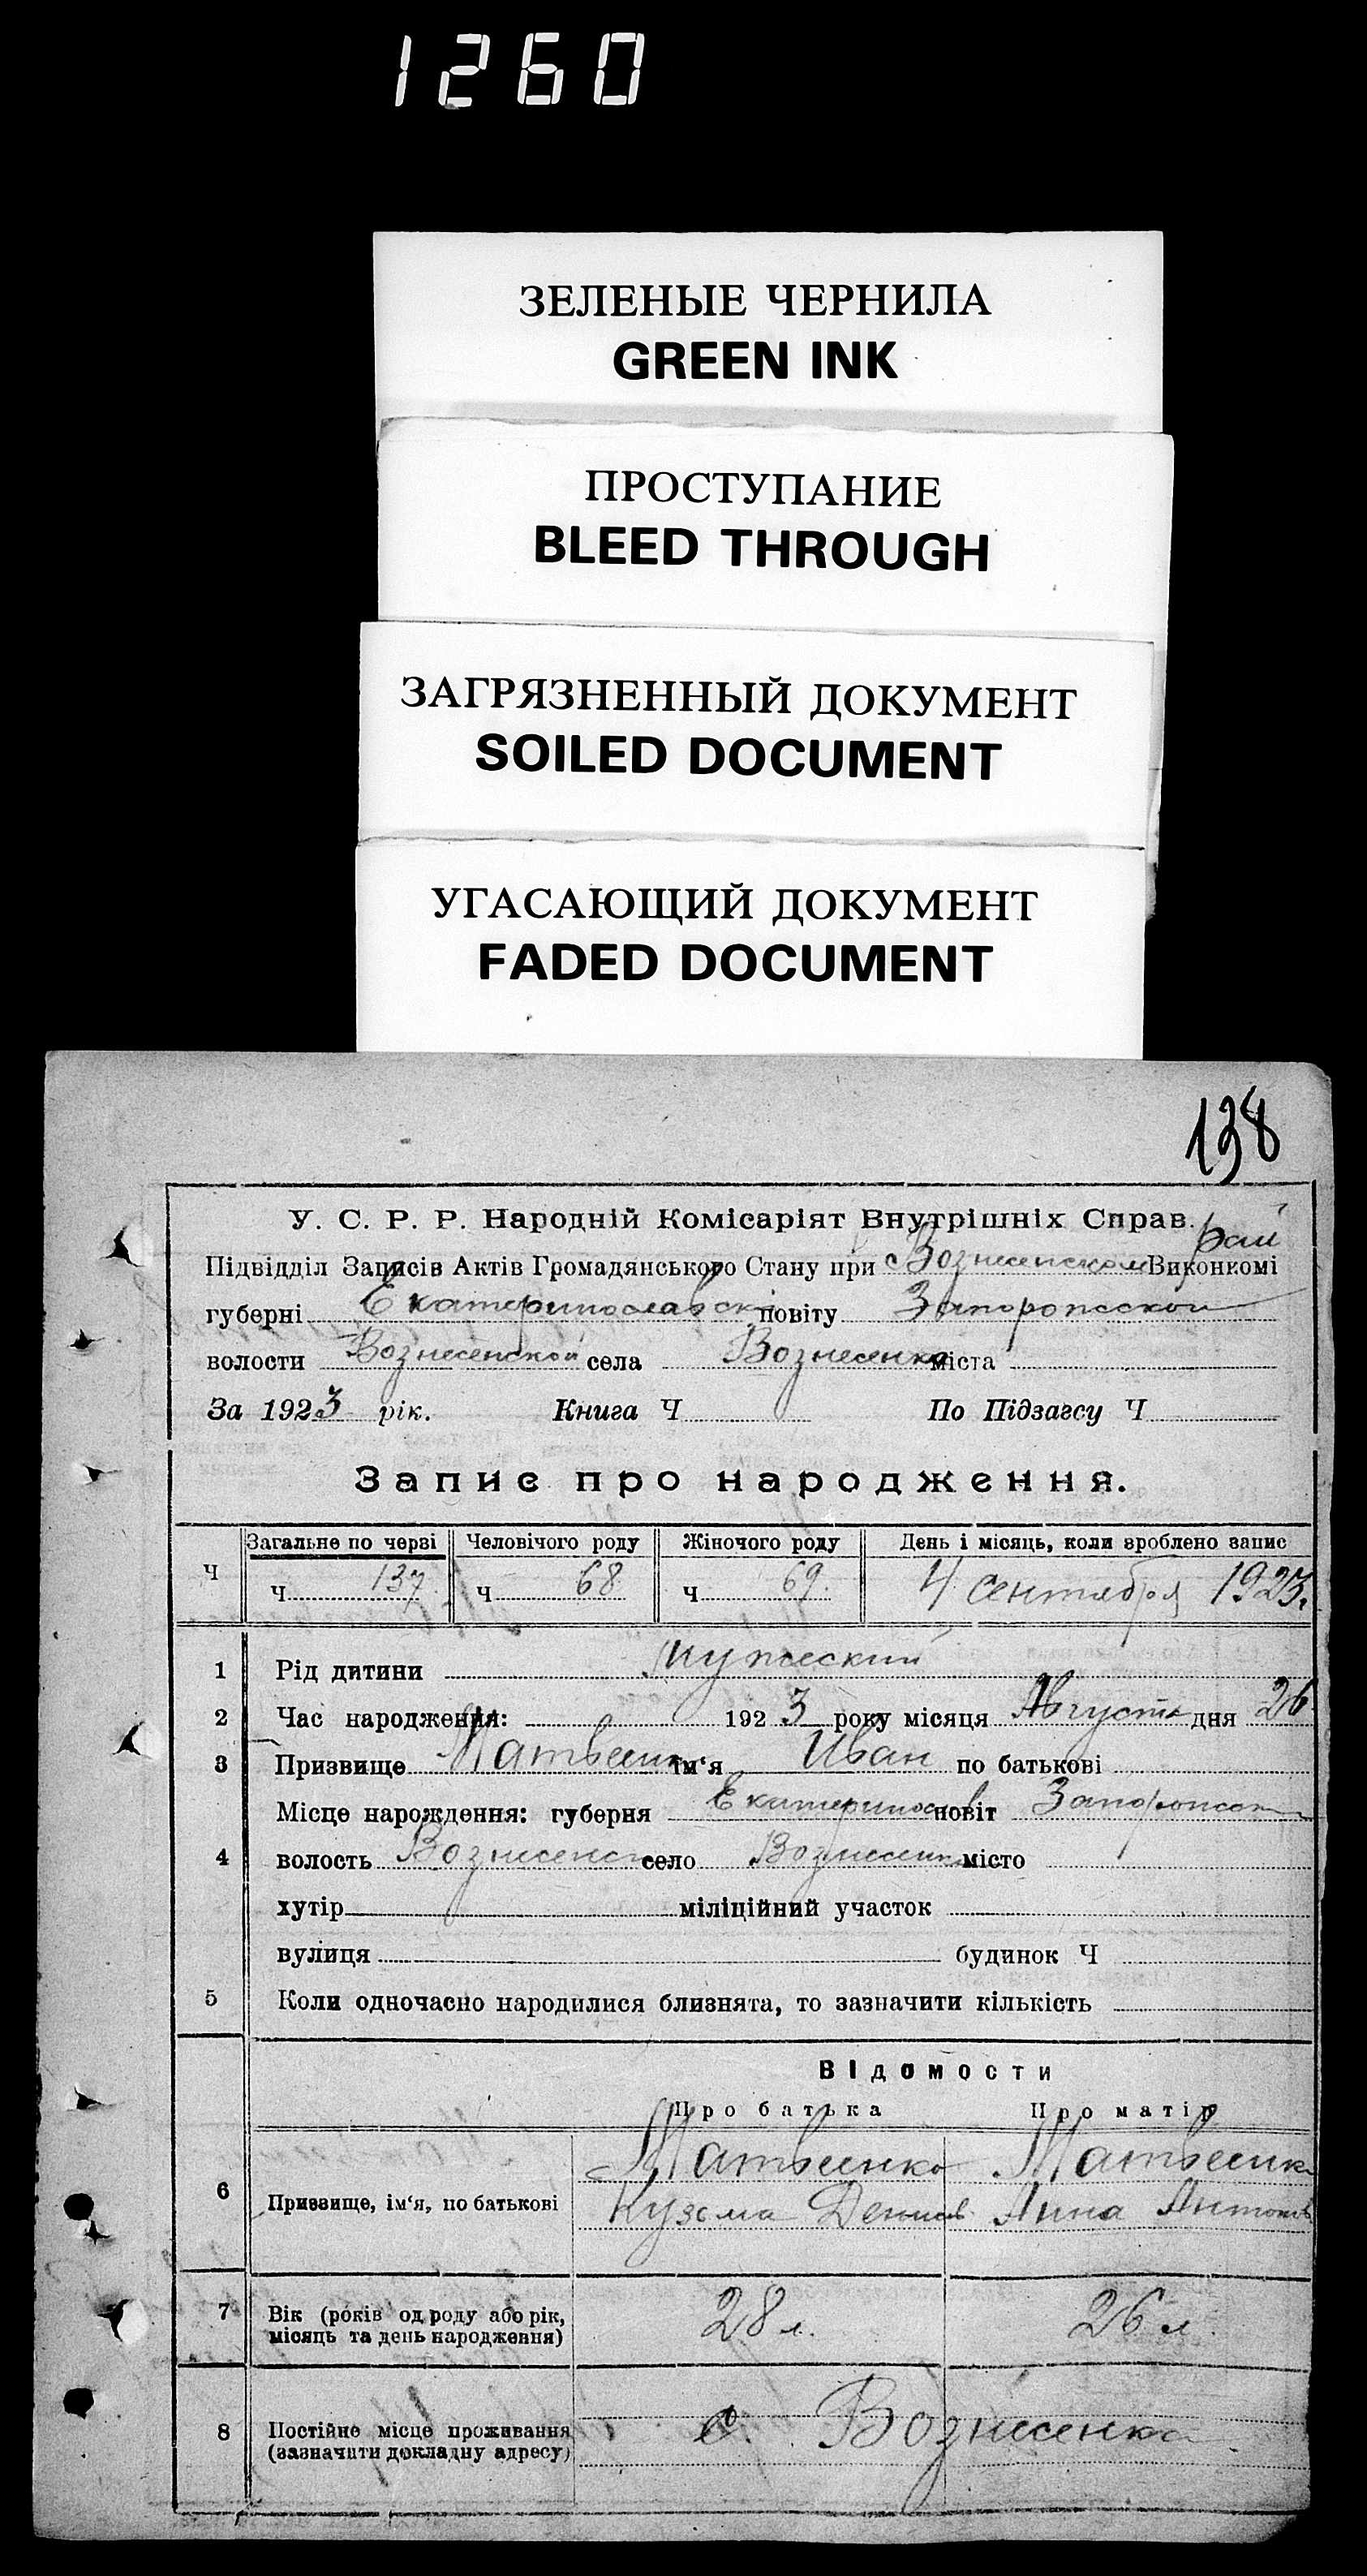 1260
ЗЕЛЕНЫЕ ЧЕРНИЛА
GREEN INK
ПРОСТУПАНИЕ
BLEED THROUGH
ЗАГРЯЗНЕННЫЙ ДОКУМЕНТ
SOILED DOCUMENT
УГАСАЮЩИЙ ДОКУМЕНТ
FADED DOCUMENT
138
У. С. Р. Р. Народній Комісаріят Внутрішніх Справ.
Підвідділ Записів Актів Громадянського Стану при Вознесенском Рай Виконкомі
губерні Екатеринославской повіту Запорожской
волости Вознесенской села Вознесенка міста
За 1923 рік. Книга Ч По Підзагсу Ч
Запис про народження.
Ч Загальне по черзі Человічого роду Жіночого роду День і місяць, коли зроблено запис
Ч 137 Ч 68 Ч 69. 4 сентября 1923г.
1 Рід дитини мужеский
2 Час народження: 1923 року місяця Августа дня 26
3 Призвище Матвеенко Ім'я Иван по батькові
Місце нарождення: губерня Екатеринослав повіт Запорожск
4 волость Вознесенск село Вознесенка місто
хутір міліційний участок
вулиця будинок Ч
5 Коли одночасно народилися близнята, то зазначити кількість
Відомости
Про батька Про матір
6 Призвище, ім'я, по батькові Матвеенко Матвеенко
Кузьма Денисов Анна Антонов
7 Вік (років од роду або рік, місяць та день народження) 28 л. 26 л.
8 Постійне місце проживання (зазначити докладну адресу) с. Вознесенка